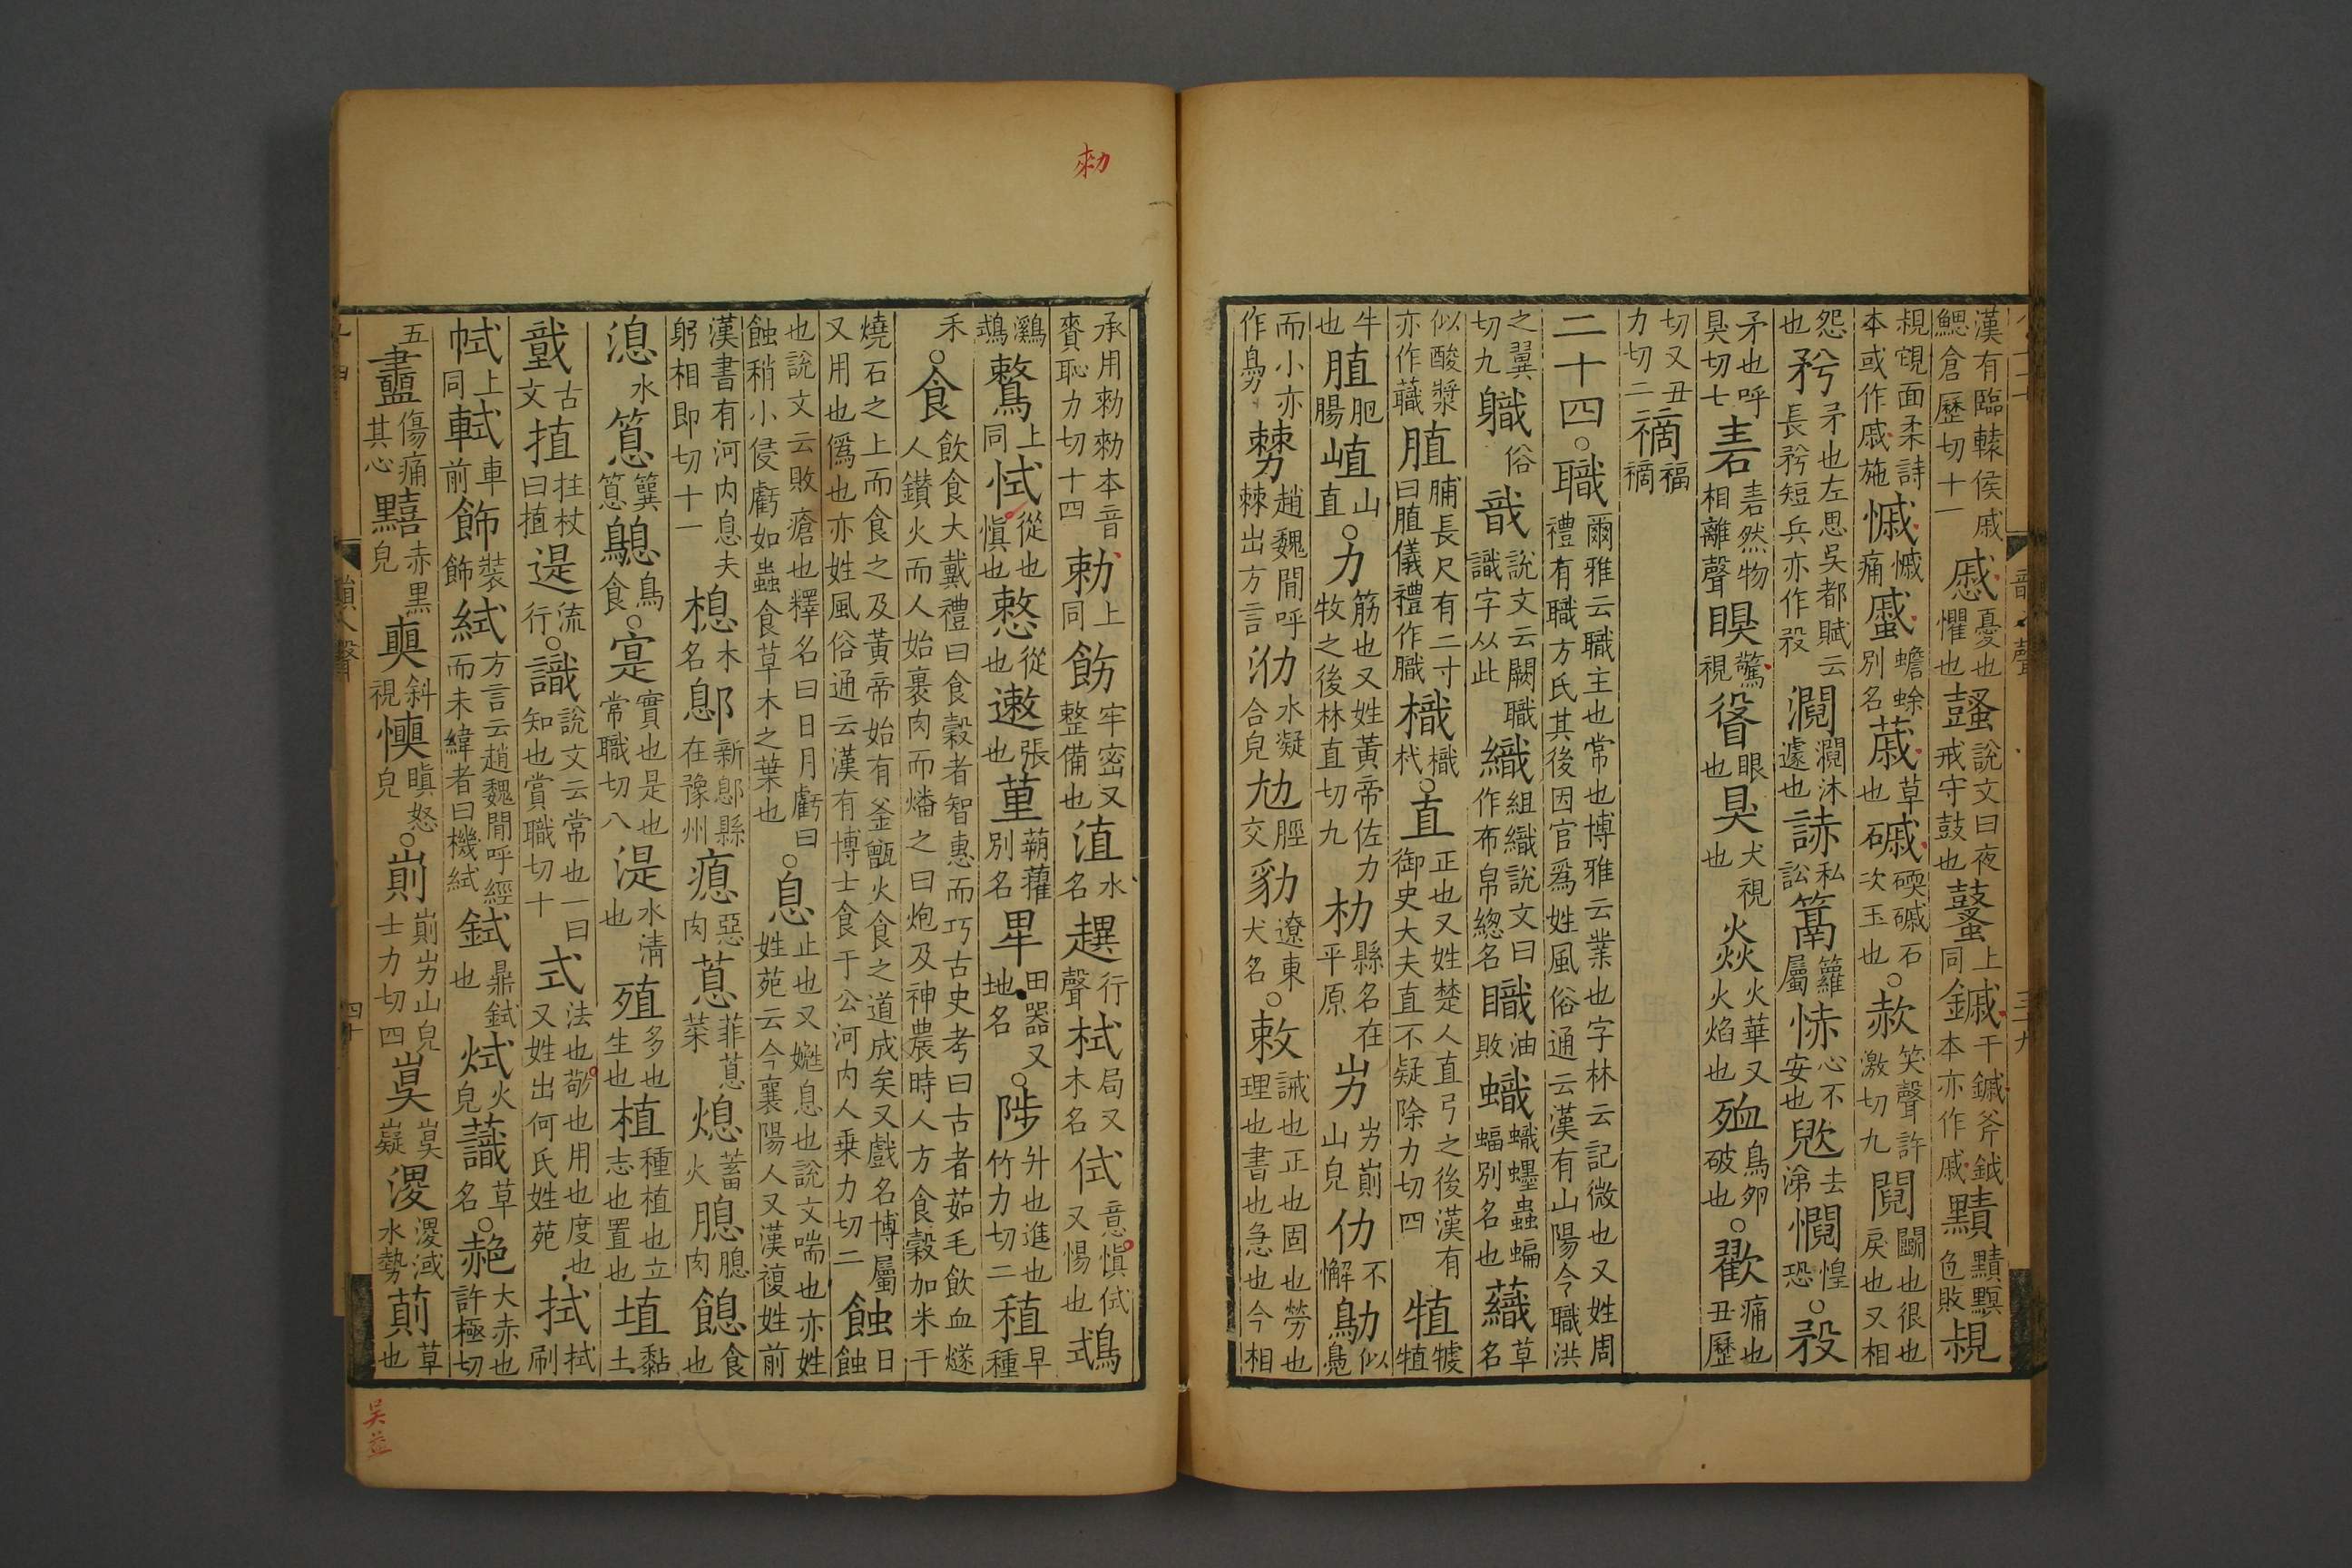 漢有臨轅侯戚鰓倉歷切十一慼憂也懼也鼜說文曰夜戒守鼓也鼜上同鏚干鏚斧鉞本亦作戚黰色敗
覛面柔詩本或作戚施慽慽痛䗩蟾蜍別名蔵草也磩碝磩石次玉也○赥笑聲許激切九鬩鬭也很也戾也又相
怨也矜矛也左思吳都賦云長矜短兵亦作殺𤄎𤄎沭遽也䛭私訟䉵籮屬㤸心不安也㰟去涕惺恐○殺
矛也呼狊切七砉砉然物相離聲瞁驚視眼也狊犬視也焱火華又火焰也殈鳥卵破也○歡痛也丑歷
切又丑力切二䄜福䄜
二十四○職爾雅云職主也常也博雅云業也字林云記微也又姓周禮有職方氏其後因官爲姓風俗通云漢有山陽令職洪
之翼切九軄俗戠說文云闕職識字从此織組織說文曰作布帛總名䐈油敗蟙蟙䘃蟲蝙蝠別名也蘵草名
似酸漿亦作蘵䐈脯長尺有二寸曰脡儀禮作職樴樴杙○直正也又姓楚人直弓之後漢有御史大夫直不疑除力切四犆犆㹀
牛也𦛘肥腸㥀山直○力筋也又姓黃帝佐力牧之後林直切九朸縣名在平原屴屴崱山皃仂不懈鳨似鳧
而小亦作鳨㔹趙魏間呼棘出方言泐水凝合皃𡯄脛交𧲡遼東犬名○敕誡也正也固也勞也理也書也急也今相
承用勑勑本音賚恥力切十四勅上同飭牢密又整備也淔水名趩行聲栻局又木名侙意慎侙又惕也鶒
鸂鶒鷘上同恜從也慎也慗從也遫張也䔮萹藋別名畟田器又地名○陟升也進也竹力切二稙早種
禾○食飲食大戴禮曰食穀者智惠而巧古史考曰古者茹毛飲血燧人鑽火而人始裹肉而燔之曰炮及神農時人方食穀加米于
燒石之上而食之及黃帝始有釜甑火食之道成矣又戲名博屬又用也僞也亦姓風俗通云漢有博士食于公河內人乗力切二蝕日蝕
也說文云敗瘡也釋名曰日月虧曰蝕稍小侵虧如蟲食草木之葉也○息止也又嬎息也說文喘也亦姓姓苑云今襄陽人又漢複姓前
漢書有河內息夫躬相即切十一㮩木名鄎新鄎縣在豫州瘜惡肉蒠菲蒠菜熄蓄火腮腮肉䭒食也
㵓水䈡䉾䈡鷾鳥食○寔實也是也常職切八湜水清也殖多也生也植種植也立志也置也埴黏土
戠古文揰拄杖曰揰遈流行○識說文云常也一曰知也賞職切十式法也敬也用也度也又姓出何氏姓苑拭拭刷
㡈上同軾車前飾裝飾𦀗方言云趙魏間呼經而未緯者曰機𦀗鉽鼎鉽也烒火皃䕀草名○赩大赤也許極切
五衋傷痛其心䵱赤黒皃奭斜視㦗瞋怒皃○崱崱屴山皃士力切四㠂㠂嶷㴽㴽淢水勢萴草也
勑
吴益